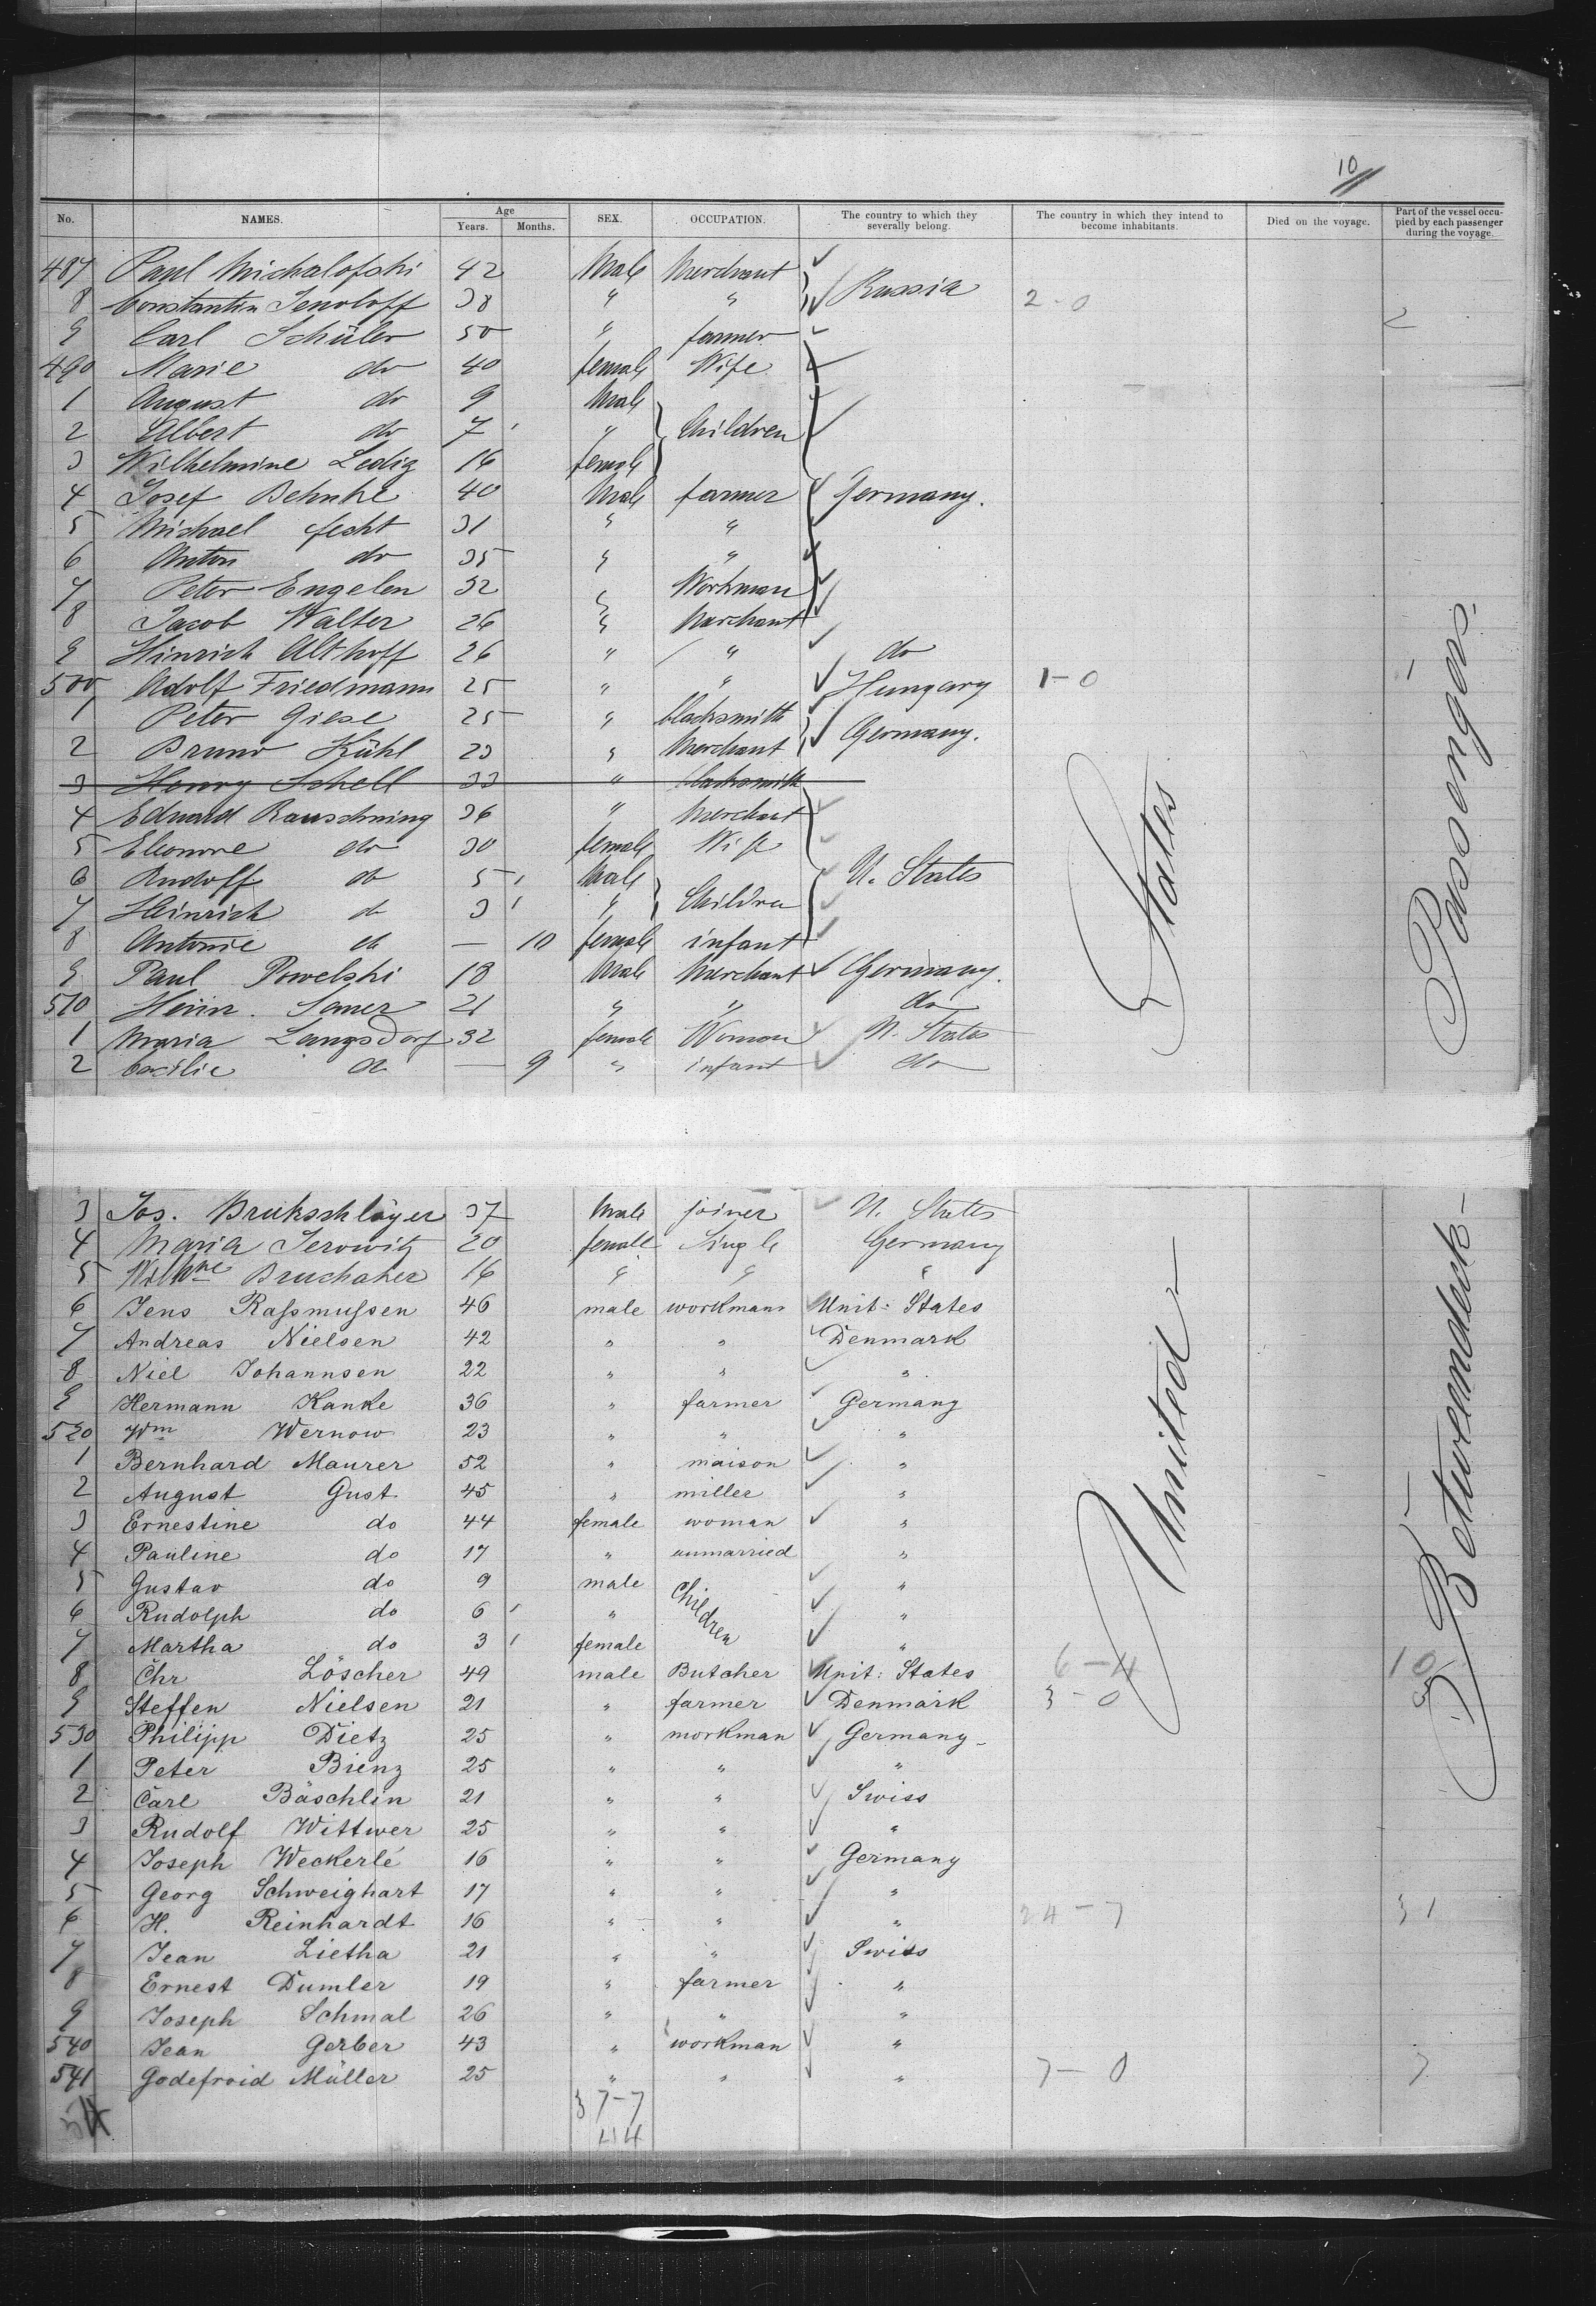 10
No. NAMES. Age Years. Months. SEX. OCCUPATION. The country to which they severally belong. The country in which they intend to become inhabitants. Died on the voyage. Part of the vessel occupied by each passenger during the voyage.
487 Paul Michalofski 42 Male Merchant
8 Constantin Jenoloff 38 " " Russia 2-0 2
9 Carl Schüler 50 " farmer
490 Marie do 40 female Wife
1 August do 9 Male
2 Albert do 7 " Children
3 Wilhelmine Ledig 16 female
4 Josef Behnke 40 Male farmer Germany.
5 Michael fecht 31 " "
6 Anton do 35 " "
7 Peter Engelen 32 " Workman
8 Jacob Walter 26 " Marchant
9 Hinrich Althoff 26 " " do
500 Adolf Friedmann 25 " " Hungary 1-0 1
1 Peter Giese 25 " blacksmith
2 Bruno Kühl 23 " Merchant Germany.
3 Henry Schell 33 " blacksmith
4 Eduard Rauschning 36 " Merchant
5 Eleonore do 30 female Wife
6 Rudolf do 5 Male U. States
7 Heinrich do 3 " Children
8 Antonie do — 10 female infant
9 Paul Powelski 18 Male Merchant Germany.
510 Heinr. Sauer 21 " " do
1 Maria Langsdorf 32 female Woman U. States
2 Cecilie do — 9 " infant do
3 Jos. Brukschläger 37 Male joiner U. States
4 Maria Serowitz 20 female Single Germany
5 Wilhne Bruchaker 16 " " "
6 Jens Rassmussen 46 male workman Unit: States
7 Andreas Nielsen 42 " " Denmark
8 Niel Johannsen 22 " " "
9 Hermann Kanke 36 " farmer Germany
520 Wm Wernow 23 " " "
1 Bernhard Maurer 52 " maison "
2 August Gust 45 " miller "
3 Ernestine do 44 female woman "
4 Pauline do 17 " unmarried "
5 Gustav do 9 male Children "
6 Rudolph do 6 " "
7 Martha do 3 female "
8 Chr Löscher 49 male Butcher Unit: States 6-4 10
9 Steffen Nielsen 21 " farmer Denmark 3-0 3
530 Philipp Dietz 25 " workman Germany
1 Peter Bienz 25 " " "
2 Carl Bäschlin 21 " " Swiss
3 Rudolf Wittwer 25 " " "
4 Joseph Weckerlé 16 " " Germany
5 Georg Schweighart 17 " " "
6 H. Reinhardt 16 " " " 24-7 31
7 Jean Lietha 21 " " Swiss
8 Ernest Dumler 19 " farmer "
9 Joseph Schmal 26 " " "
540 Jean Gerber 43 " workman "
541 Godefroid Müller 25 " " " 7-0 7
37-7
44
United States
Betweendeck-Passengers.